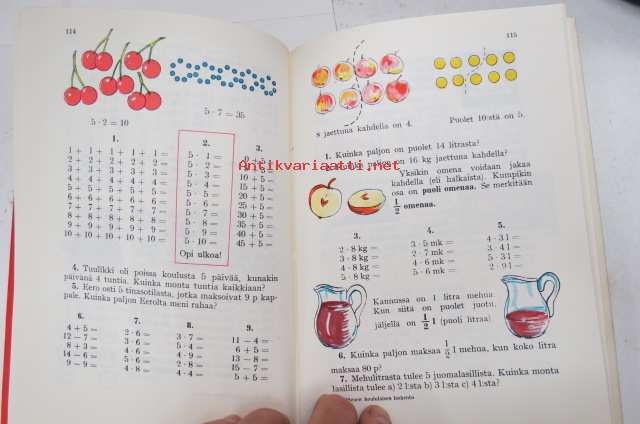 114
5 · 2 = 10
5 · 7 = 35
1.
1 + 1 + 1 + 1 + 1 =
2 + 2 + 2 + 2 + 2 =
3 + 3 + 3 + 3 + 3 =
4 + 4 + 4 + 4 + 4 =
5 + 5 + 5 + 5 + 5 =
6 + 6 + 6 + 6 + 6 =
7 + 7 + 7 + 7 + 7 =
8 + 8 + 8 + 8 + 8 =
9 + 9 + 9 + 9 + 9 =
10 + 10 + 10 + 10 + 10 =
2.
5 · 1 =
5 · 2 =
5 · 3 =
5 · 4 =
5 · 5 =
5 · 6 =
5 · 7 =
5 · 8 =
5 · 9 =
5 · 10 =
Opi ulkoa!
3.
0 + 5 =
15 + 5 =
20 + 5 =
25 + 5 =
30 + 5 =
35 + 5 =
40 + 5 =
45 + 5 =
4. Tuulikki oli poissa koulusta 5 päivää, kunakin
päivänä 4 tuntia. Kuinka monta tuntia kaikkiaan?
5. Eero osti 5 tinasotilasta, jotka maksoivat 9 p kap-
pale. Kuinka paljon Eerolta meni rahaa?
6.
4 + 5 =
12 − 7 =
8 + 3 =
14 − 6 =
9 − 9 =
7.
2 · 6 =
3 · 6 =
4 · 6 =
5 · 6 =
2 · 8 =
8.
3 · 7 =
5 · 4 =
4 · 9 =
2 · 8 =
4 · 4 =
9.
11 − 4 =
6 + 5 =
13 − 8 =
15 − 7 =
5 + 5 =
Antikvariaatti.net
115
8 jaettuna kahdella on 4.
Puolet 10:stä on 5.
1. Kuinka paljon on puolet 14 litrasta?
2. Kuinka paljon on 16 kg jaettuna kahdella?
Yksikin omena voidaan jakaa
kahdella (eli halkaista). Kumpikin
osa on puoli omenaa. Se merkitään
1/2 omenaa.
3.
2 · 8 kg =
3 · 8 kg =
4 · 8 kg =
5 · 8 kg =
4.
3 · 5 mk =
2 · 7 mk =
4 · 6 mk =
5 · 6 mk =
5.
4 · 3 l =
3 · 5 l =
5 · 4 l =
2 · 9 l =
Kannussa on 1 litra mehua.
Kun siitä on puolet juotu,
jäljellä on 1/2 l (puoli litraa).
6. Kuinka paljon maksaa 1/2 l mehua, kun koko litra
maksaa 80 p?
7. Mehulitrasta tulee 5 juomalasillista. Kuinka monta
lasillista tulee a) 2 l:sta b) 3 l:sta c) 4 l:sta?